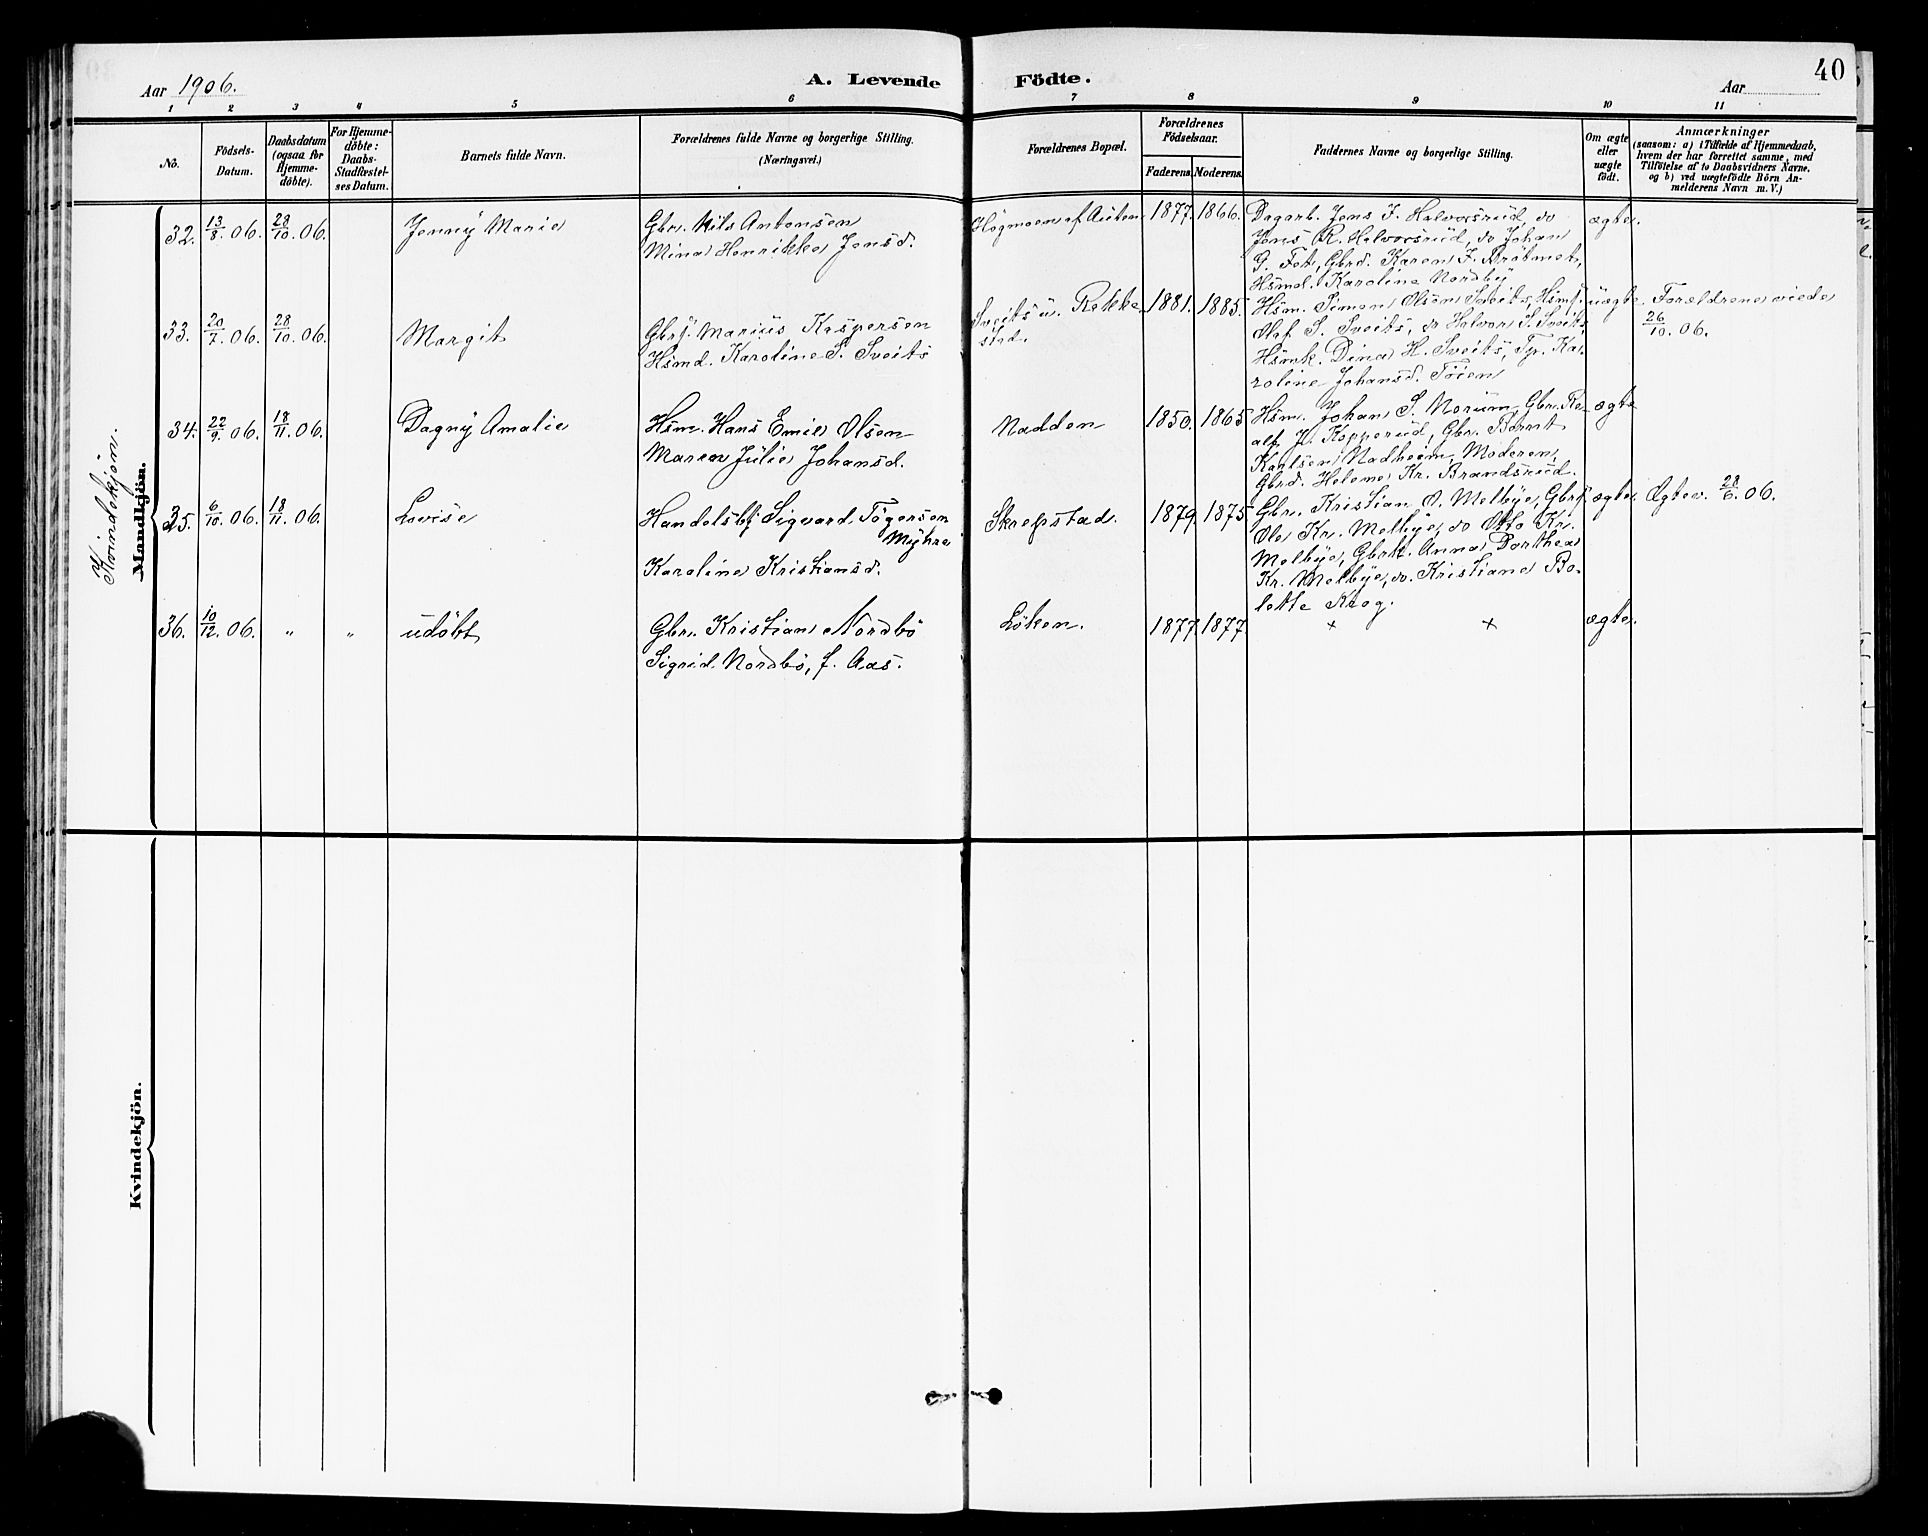 Aar 1906.
A. Levende Födte.
Aar
40
1 2 3 4 5 6 7 8 9 10 11
No.
Födsels-
Datum.
Daabsdatum
(ogsaa for
Hjemme-
döbte).
For Hjemme-
döbte:
Daabs-
Stadfæstel-
ses Datum.
Barnets fulde Navn.
Forældrenes fulde Navne og borgerlige Stilling.
(Næringsvei.)
Forældrenes Bopæl.
Forældrenes
Födselsaar.
Faderens.
Moderens.
Faddernes Navne og borgerlige Stilling.
Om ægte
eller
uægte
födt.
Anmærkninger
(saasom: a) i Tilfælde af Hjemmedaab,
hvem der har forrettet samme, med
Tilföielse af to Daabsvidners Navne,
og b) ved uægtefödte Börn An-
melderens Navn m. V.)
Kvindekjøn.
Mandkjön.
32. 13/8 06. 28/10 06.
Jenny Marie
Gbr. Nils Antonsen
Mina Henrikke Jensd.
Høgmoen af Auten
1877. 1866.
Dagarb. Jens J. Halvorsrud, do
Jens R. Halvorsrud, do Johan
G. Fot, Gbrd. Karen J. Brøtmet,
Hsmd. Karoline Nordby
ægte.
33. 20/7 06. 28/10 06.
Margit
Gbrs. Marius Kaspersen
Hsmd. Karoline S. Sveits
Sveits u. Rekke
stad.
1881. 1885.
Hsm. Simen Olsen Sveits, Hsms.
Olaf S. Sveits, do Halvor S. Sveits
Hsmk. Dina H. Sveits, Tj. Ka-
roline Johansd. Tøien
uægte
Forældrene viede
26/10. 06.
34. 22/9 06. 18/11. 06.
Dagny Amalie
Hsm. Hans Emil Olsen
Maren Julie Johansd.
Nadden
1850. 1865
Hsm. Johan S. Norum, Gbr. Ro-
alf H. Kopperud, Gbr. Bernt
Karlsen Nadheim, Moderen,
Gbrd. Helene Kr. Brandsrud.
ægte
35. 6/10. 06. 18/11. 06.
Lovise
Handelsbj. Sigvard Tøgersen
Myhre
Karoline Kristiansd.
Skrepstad.
1879. 1875
Gbr. Kristian O. Melbye, Gbrs.
Ole Kr. Melbye, do Otto Kr.
Melbye, Gbrk. Anna Dorthea
Kr. Melbye, do. Kristiane Bo-
lette Krog.
ægte.
Ægtev. 28/6. 06.
36. 10/12. 06. " "
udøbt
Gbr. Kristian Nordbø
Sigrid Nordbø, f. Aas.
Løken.
1877. 1877.
+ +
ægte.
Kvindekjön.